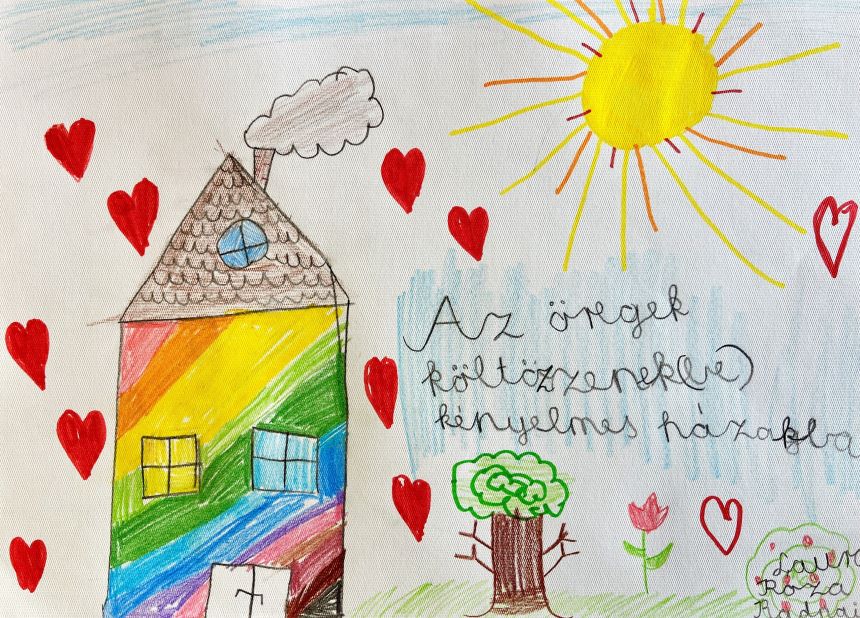 Az öregek
költözzenek(be)
kényelmes házakba
Laura
Róza